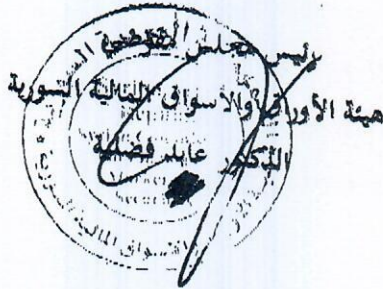 رئيس مجلس المفوضين
هيئة الأوراق والأسواق المالية السورية
الدكتور عابد فضلية